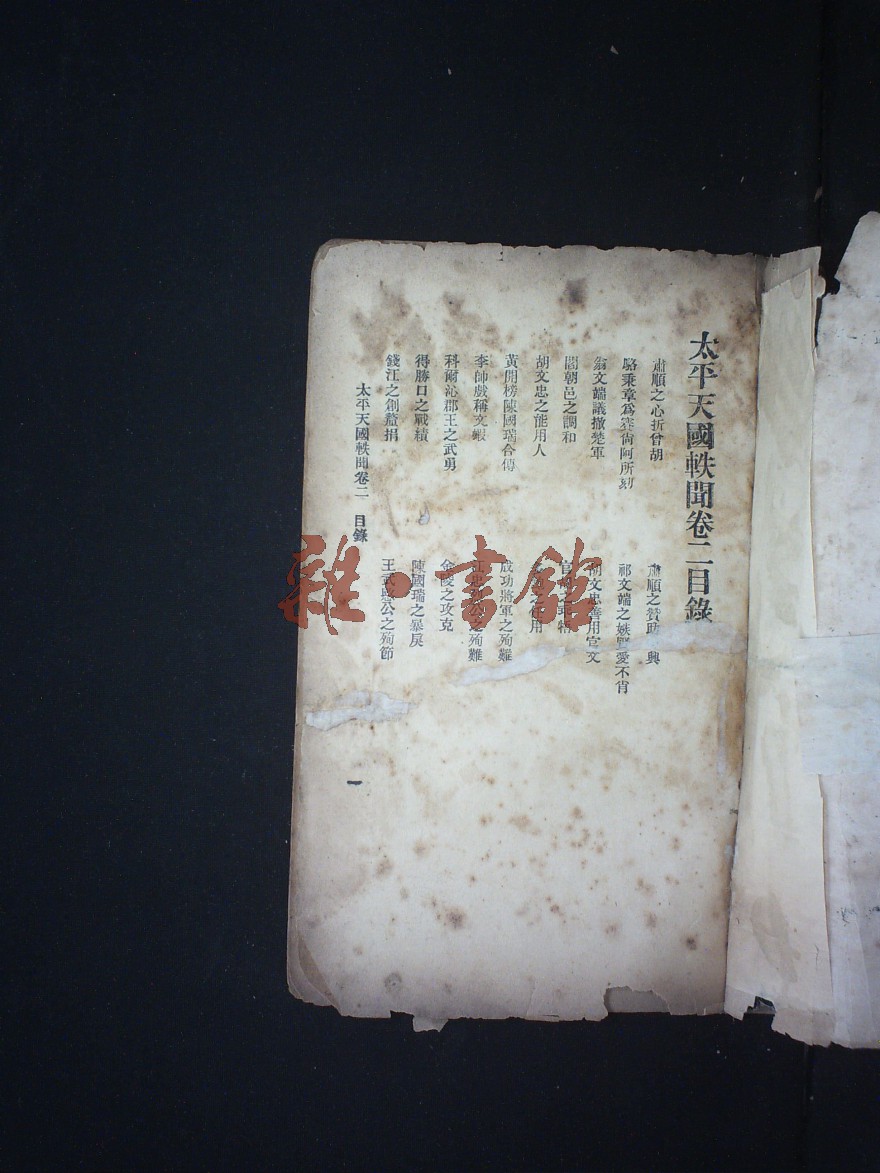 太平天國軼聞卷二目錄
肅順之心折曾胡
肅順之贊助 興
駱秉章爲賽尙阿所劾
祁文端之嫉賢愛不肖
翁文端議撤楚軍
胡文忠善用官文
閻朝邑之調和
官
胡文忠之能用人
用
黃開榜陳國瑞合傳
成功將軍之殉難
李帥戲稱文蝦
江忠 公之殉難
科爾沁郡王之武勇
金陵之攻克
得勝口之戰績
陳國瑞之暴戾
錢江之創釐捐
王武愍公之殉節
太平天國軼聞卷二 目錄
一
雜·書館